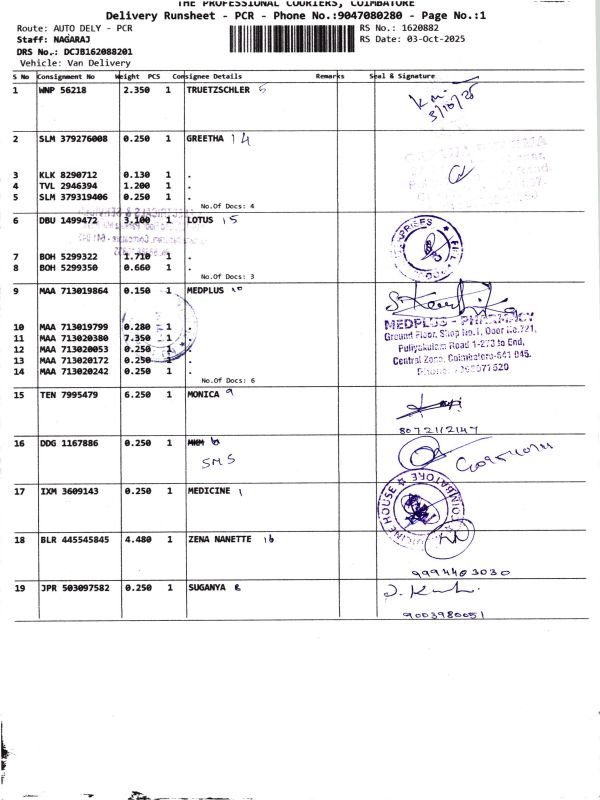 THE PROFESSIONAL COURIERS, COIMBATORE
Delivery Runsheet - PCR - Phone No.:9047080280 - Page No.:1
Route: AUTO DELY - PCR
RS No.: 1620882
Staff: NAGARAJ
RS Date: 03-Oct-2025
DRS No.: DCJB162088201
Vehicle: Van Delivery
S No Consignment No Weight PCS Consignee Details Remarks Seal & Signature
1 WNP 56218 2.350 1 TRUETZSCHLER 5
3/10/25
2 SLM 379276008 0.250 1 GREETHA 14
3 KLK 8290712 0.130 1 .
4 TVL 2946394 1.200 1 .
5 SLM 379319406 0.250 1 .
No.Of Docs: 4
6 DBU 1499472 3.100 1 LOTUS 15
7 BOH 5299322 1.710 1 .
8 BOH 5299350 0.660 1 .
No.Of Docs: 3
9 MAA 713019864 0.150 1 MEDPLUS 10
MEDPLUS - PHARMACY
Ground Floor, Shop No.1, Door No.221,
Puliyakulam Road 1-273 to End,
Central Zone, Coimbatore-641 045.
10 MAA 713019799 0.280 1 .
11 MAA 713020380 7.350 1 .
12 MAA 713020053 0.250 1 .
13 MAA 713020172 0.250 1 .
14 MAA 713020242 0.250 1 .
No.Of Docs: 6
15 TEN 7995479 6.250 1 MONICA 9
8072112147
16 DDG 1167886 0.250 1
SMS
17 IXM 3609143 0.250 1 MEDICINE 1
MEDICINE HOUSE ☆ COIMBATORE
18 BLR 445545845 4.480 1 ZENA NANETTE 16
9994403030
19 JPR 503097582 0.250 1 SUGANYA 8
9003980051